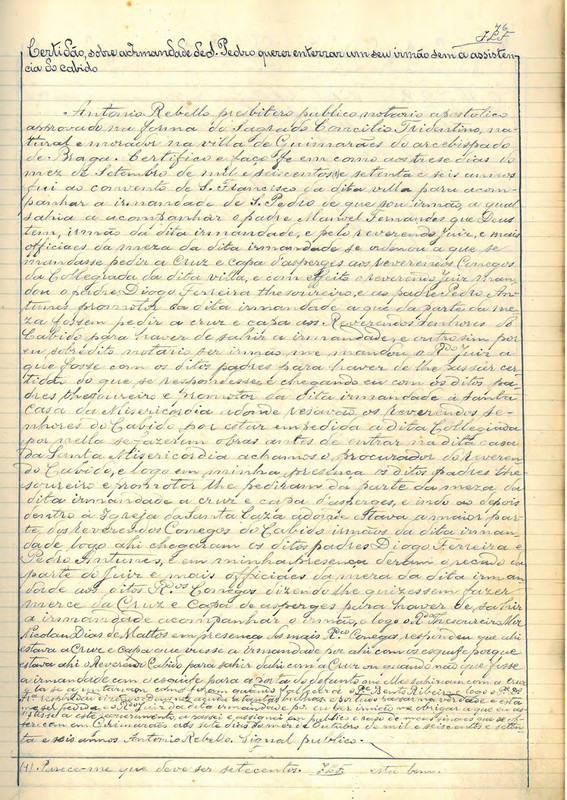 76
J.L.F.
Certidão, sobre a Irmandade de S. Pedro querer enterrar um seu irmão sem a assisten-
cia do cabido
Antonio Rebello presbitero publico notario apostolico
approvado na forma do Sagrado Concilio Tridentino, na-
tural e morador na villa de Guimarães do arcebispado
de Braga. Certifico e faço fe em como aos trese dias do
mez de Setembro de mil e seiscentos e setenta e seis annos
fui ao convento de S. Francisco da dita villa para acom-
panhar a irmandade de S. Pedro de que sou irmão, a qual
sahia a acompanhar o padre Manoel Fernandes que Deus
tem, irmão da dita irmandade, e pelo reverendo Juiz, e mais
officiaes da meza da dita irmandade se ordenou a que se
mandasse pedir a Cruz e capa d'asperges aos Reverendos Conegos
da Collegiada da dita villa, e com effeito o reverendo Juiz man-
dou o padre Diogo Ferreira thesoureiro, e ao padre Pedro An-
tunes promotor da dita irmandade a que da parte da me-
za fossem pedir a cruz e capa aos Reverendos Senhores do
Cabido para haver de sahir a irmandade, e outro sim por
eu sobredito notario ser irmão, me mandou o Rdo Juiz a
que fosse com os ditos padres para haver de lhe passar cer-
tidão do que se respondesse, e chegando eu com os ditos pa-
dres thesoureiro e promotor da dita irmandade á Santa
Casa da Misericordia adonde resavão os Reverendos Se-
nhores do Cabido por estar impedida a dita Collegiada
por nella se fazerem obras antes de entrar na dita casa
da Santa Misericordia achamos o procurador do Reveren-
do Cabido, e logo em minha presença os ditos padres the-
soureiro e promotor lhe pediram da parte da meza da
dita irmandade a cruz e capa d'asperges, e indo ao depois
dentro á Igreja da Santa Caza adonde estava a maior par-
te dos Reverendos Conegos do Cabido irmãos da dita irman-
dade logo ahi chegaram os ditos padres Diogo Ferreira e
Pedro Antunes, e em minha presença deram o recado da
parte do Juiz e mais officiaes da meza da dita irman-
dade aos ditos R.os Conegos dizendo lhe quizessem fazer
merce da Cruz e Capa de asperges para haver de sahir
a irmandade acompanhar o irmão, e logo o R. Thesoureiro Mor
Nicolau Dias de Mattos em presença dos mais R.dos Conegos, respondeu que ahi
estava a Cruz e capa que viesse a irmandade por ahi com o esquife porque
estava ahi o Reverendo Cabido para sahir dahi com a Cruz ou quando não que fosse
a irmandade com o esquife para a porta do defunto
quando
Bento Ribeiro e logo
passar na verdade e esta
me ser pedida
da dita irmandade
este
assignei em publico e
em Guimarães aos sete dias
Outubro de mil e seiscentos e seten-
ta e seis annos. Antonio Rebello. Signal publico.
(1) Parece-me que deve ser setecentos. J.L.F. está bem.